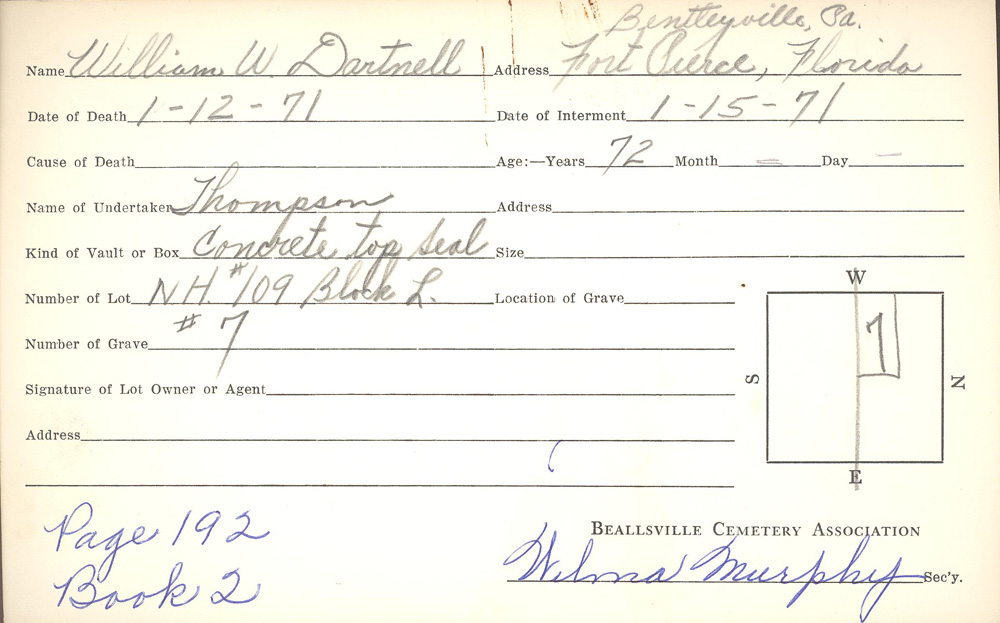 Bentleyville, Pa.
Name William W. Dartnell Address Fort Pierce, Florida
Date of Death 1-12-71 Date of Interment 1-15-71
Cause of Death Age:—Years 72 Month = Day —
Name of Undertaker Thompson Address
Kind of Vault or Box Concrete top seal Size
Number of Lot N.H. #109 Block L. Location of Grave
Number of Grave # 7
Signature of Lot Owner or Agent
Address
W
7
S N
E
Page 192
Book 2
BEALLSVILLE CEMETERY ASSOCIATION
Wilma Murphy Sec'y.